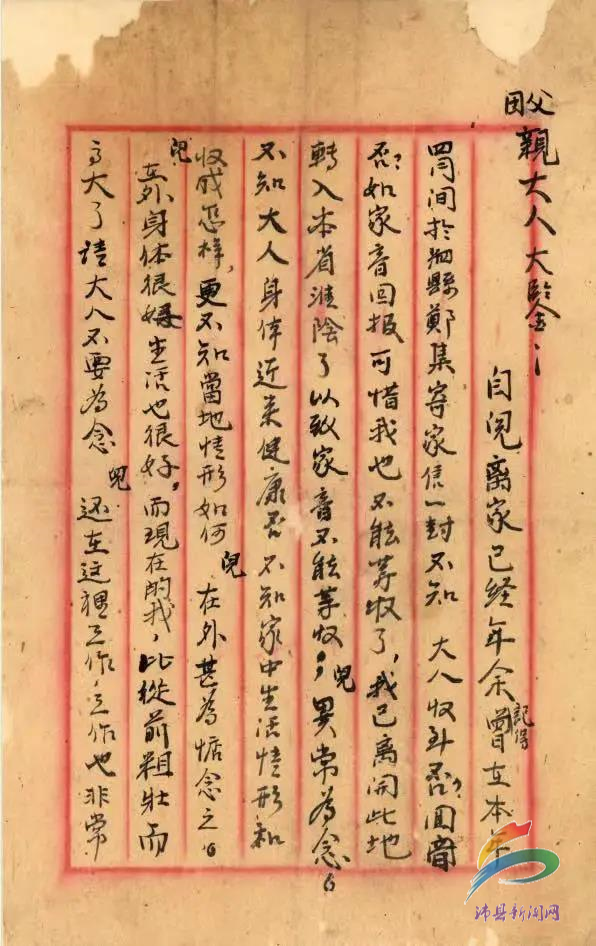 父親大人大鑒：
自児离家已经年余記得曾在本年
四月间於泗縣鄭集寄家信一封不知 大人收到否？回音
否？如家音回报可惜我也不能等收了，我已离開此地
轉入本省淮陰了以致家音不能等收，児異常為念。
不知大人身体近来健康否 不知家中生活情形和
收成怎样，更不知當地情形如何児在外甚為惦念之。
児在外身体很好生活也很好，而現在的我，比從前粗壮而
高大了请大人不要為念児还在这裡工作，工作也非常
沛县新闻网